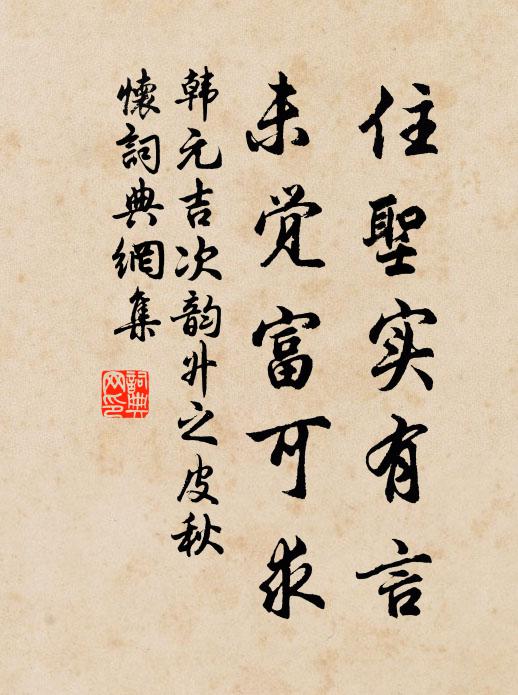 住聖实有言
未觉富可求
韩元吉次韵廾之皮秋
懷詞典網集
詞典
网印